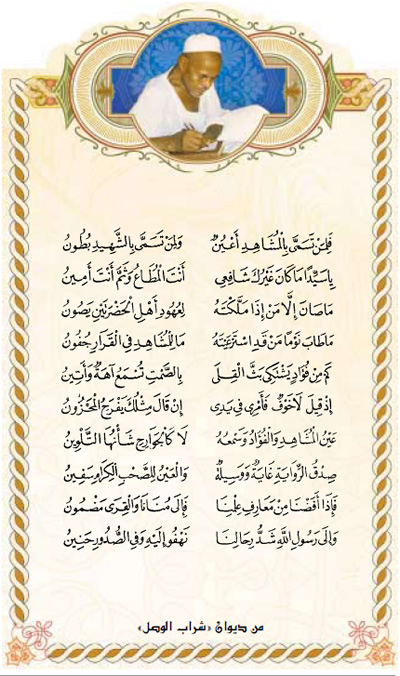 فَلِمَنْ تَسَمَّى بِالْمُشَاهِدِ أَعْيُنٌ وَلِمَنْ تَسَمَّى بِالشَّهِيدِ بُطُونُ
يَاسَيِّدًا مَاكَانَ غَيْرُكَ شَافِعِي أَنْتَ الْمُطَاعُ وَثَمَّ أَنْتَ أَمِينُ
مَاصَانَ إِلَّا مَنْ إِذَا مَلَّكْتَهُ لِعُهُودِ أَهْلِ الْحَضْرَتَيْنِ يَصُونُ
مَاطَابَ نَوْمًا مَنْ قَدِ اسْتَرْعَيْتَهُ مَا لِلْمُشَاهِدِ فِي الْقَرَارِ جُفُونُ
كَمْ مِنْ فُؤَادٍ يَشْتَكِي بَثَّ الْقِلَى بِالصَّمْتِ تُسْمَعُ آهَةٌ وَأَنِينُ
إِذْ قِيلَ لَاخَوْفٌ فَأَمْرِي فِي يَدِي إِنْ قَالَ مِثْلُكَ يَفْرَحُ الْمَحْزُونُ
عَيْنُ الْمُشَاهِدِ وَالْفُؤَادُ وَسَمْعُهُ لَا كَالْجَوَارِحِ شَأْنُهَا التَّلْوِينُ
صِدْقُ الرِّوَايَةِ غَايَةٌ وَوَسِيلَةٌ وَالْعَيْنُ لِلصَّحْبِ الْكِرَامِ سَفِينُ
فَإِذَا أَفَضْنَا مِنْ مَعَارِفِ عِلْمِنَا فَإِلَى مُنَانَا وَالْقِرَى مَضْمُونُ
وَإِلَى رَسُولِ اللَّهِ شَدُّ رِحَالِنَا نَهْفُو إِلَيْهِ وَفِي الصُّدُورِ حَنِينُ
من ديوان «شراب الوصل»